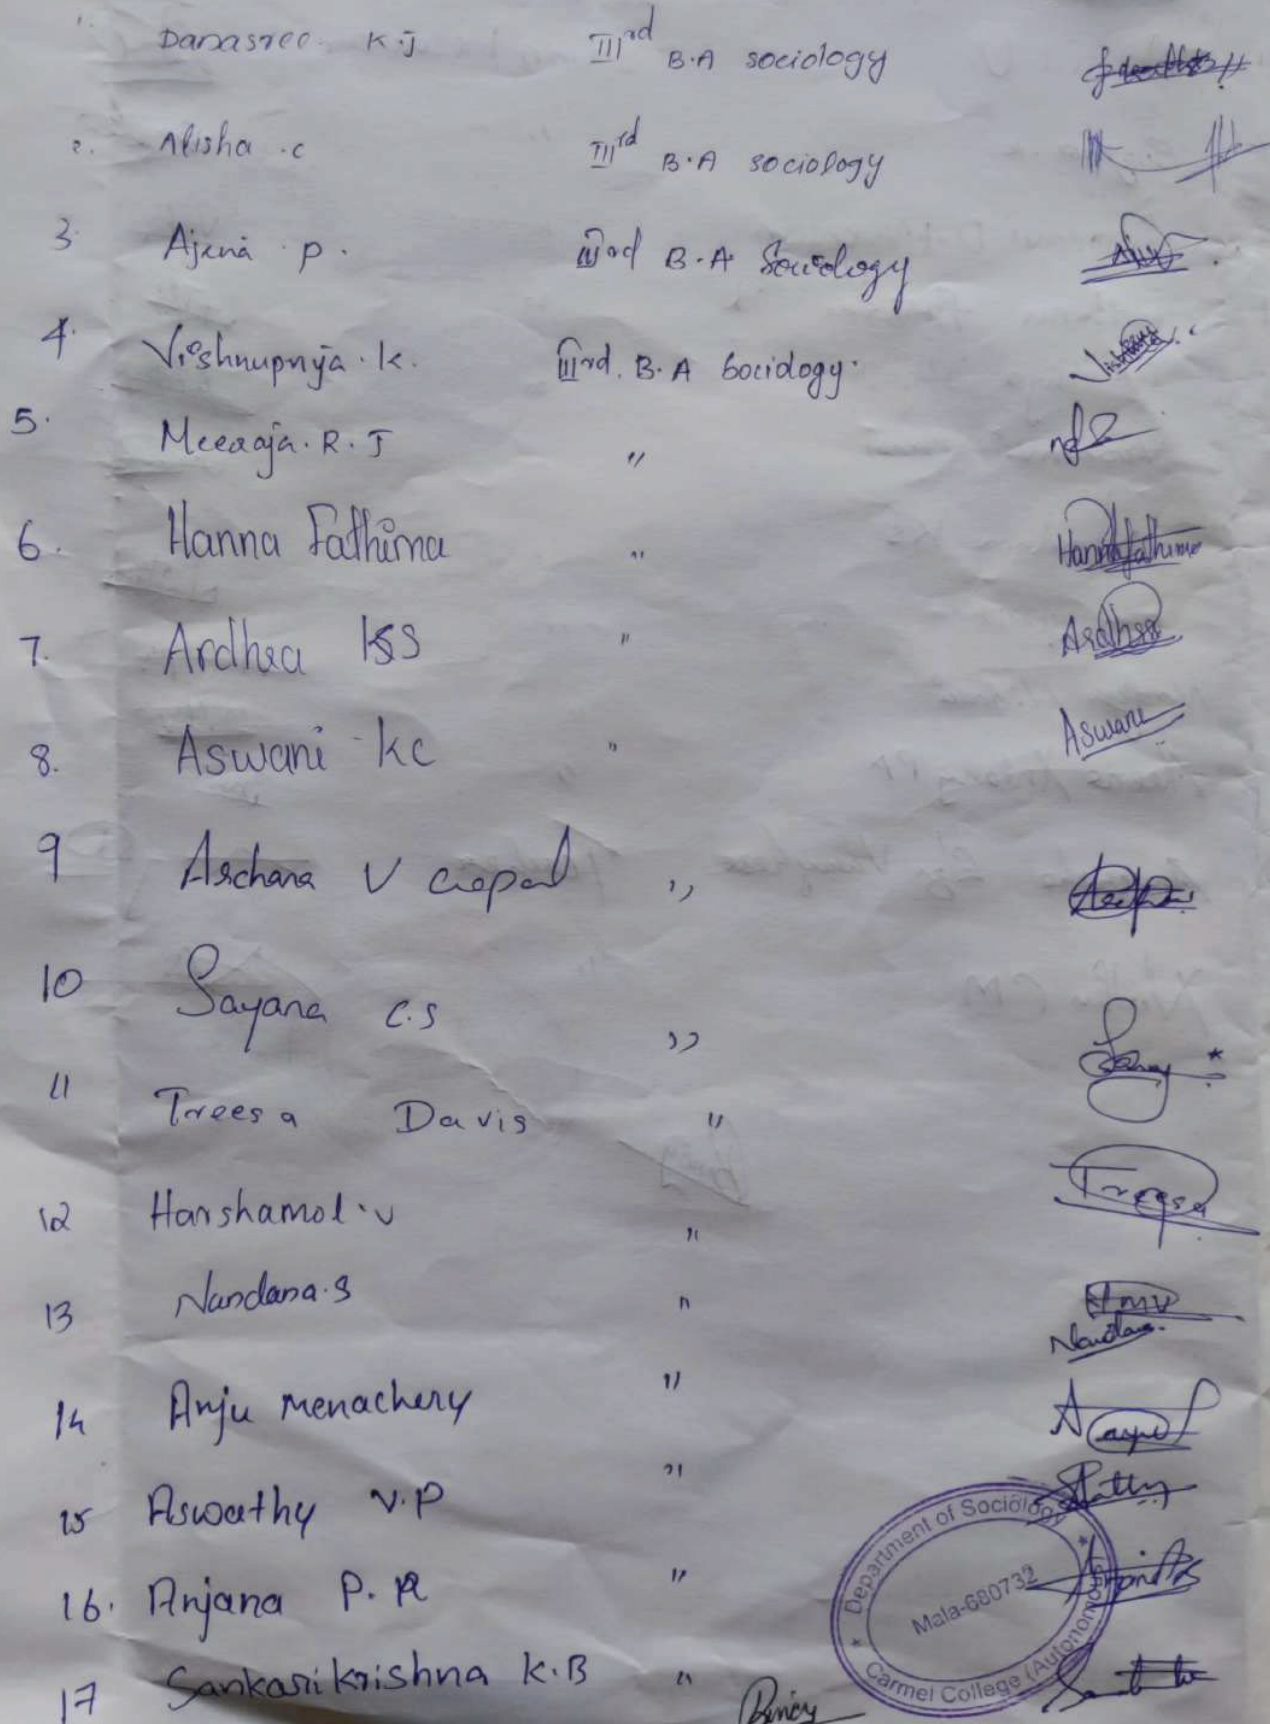 1. Danasree. K.J IIIrd B.A sociology
2. Alisha .c IIIrd B.A sociology
3. Ajena P. IIIrd B.A Sociology
4. Vishnupriya. K. IIIrd. B.A Sociology.
5. R.J "
6. Hanna Fathima " Hanna fathima
7. Ardhra KS " Ardhra
8. Aswani KC " Aswani
9 Archana V Gopal "
10 Sayana C.S "
11 Treesa Davis " Treesa
12 Harshamol.V " HMV
13 Nandana.S " Nandana.
14 Anju Menachery "
15 Aswathy V.P "
16. Anjana P.R "
17 Sankarikrishna K.B "
Department of Sociology
Mala-680732
Carmel College (Autonomous)